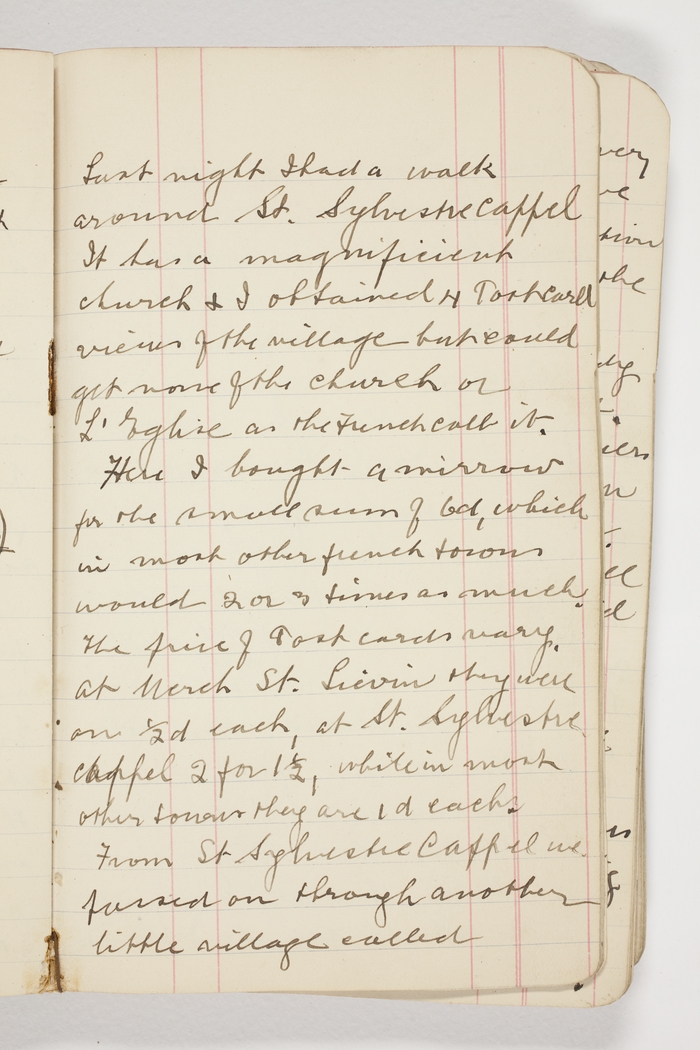 Last night I had a walk
around St. Sylvestre Cappel
It has a magnificient
church & I obtained 4 Post card
views of the village but could
get none of the church or
L' Eglise as the French call it.
Here I bought a mirrow
for the small sum of 6d, which
in most other french towns
would 2 or 3 times as much.
The price of Post cards vary.
At Merck St. Lievin they were
on ½d each, at St. Sylvestre
Cappel 2 for 1½, while in most
other towns they are 1d each.
From St Sylvestre Cappel we
passed on through another
little village called
very
ve
the